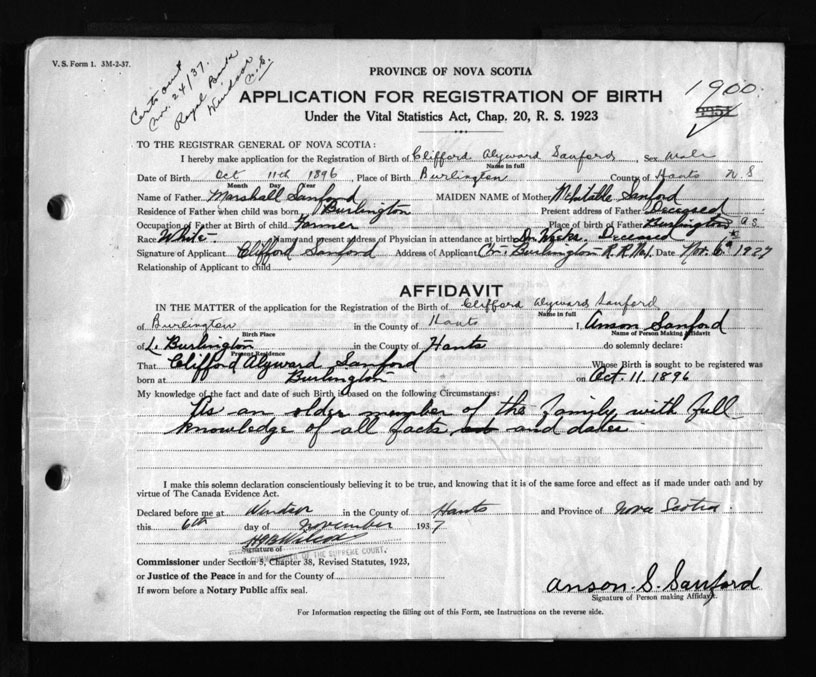 V. S. Form 1. 3M-2-37.
Certs out
Nov. 24/37.
Royal Bank
Windsor
N.S.
1900.
PROVINCE OF NOVA SCOTIA
APPLICATION FOR REGISTRATION OF BIRTH
Under the Vital Statistics Act, Chap. 20, R. S. 1923
TO THE REGISTRAR GENERAL OF NOVA SCOTIA:
I hereby make application for the Registration of Birth of Clifford Alyward Sanford, Sex Male
Name in full
Date of Birth Oct 11th 1896, Place of Birth Burlington County of Hants N S
Month Day Year
Name of Father Marshall Sanford MAIDEN NAME of Mother Sanford
Residence of Father when child was born Burlington Present address of Father Deceased
Occupation of Father at Birth of child Farmer Place of birth of Father Burlington
Race White Name and present address of Physician in attendance at birth Dr. Deceased
Signature of Applicant Clifford Sanford Address of Applicant Burlington R.R. No 1. Date Nov. 6th 1937
Relationship of Applicant to child
AFFIDAVIT
IN THE MATTER of the application for the Registration of the Birth of Clifford Alyward Sanford
Name in full
of Burlington in the County of Hants I, Anson Sanford
Birth Place Name of Person Making Affidavit
of L. Burlington in the County of Hants do solemnly declare:
Present Residence
That Clifford Alyward Sanford Whose Birth is sought to be registered was
born at Burlington on Oct. 11. 1896
My knowledge of the fact and date of such Birth is based on the following Circumstances:
As an older member of the family, with full
knowledge of all facts and dates
I make this solemn declaration conscientiously believing it to be true, and knowing that it is of the same force and effect as if made under oath and by
virtue of The Canada Evidence Act.
Declared before me at Windsor in the County of Hants and Province of Nova Scotia
this 6th day of November 1937
Signature of
COMMISSIONER OF THE SUPREME COURT.
Commissioner under Section 5, Chapter 38, Revised Statutes, 1923,
or Justice of the Peace in and for the County of
If sworn before a Notary Public affix seal.
Anson. S. Sanford
Signature of Person making Affidavit.
For Information respecting the filling out of this Form, see Instructions on the reverse side.